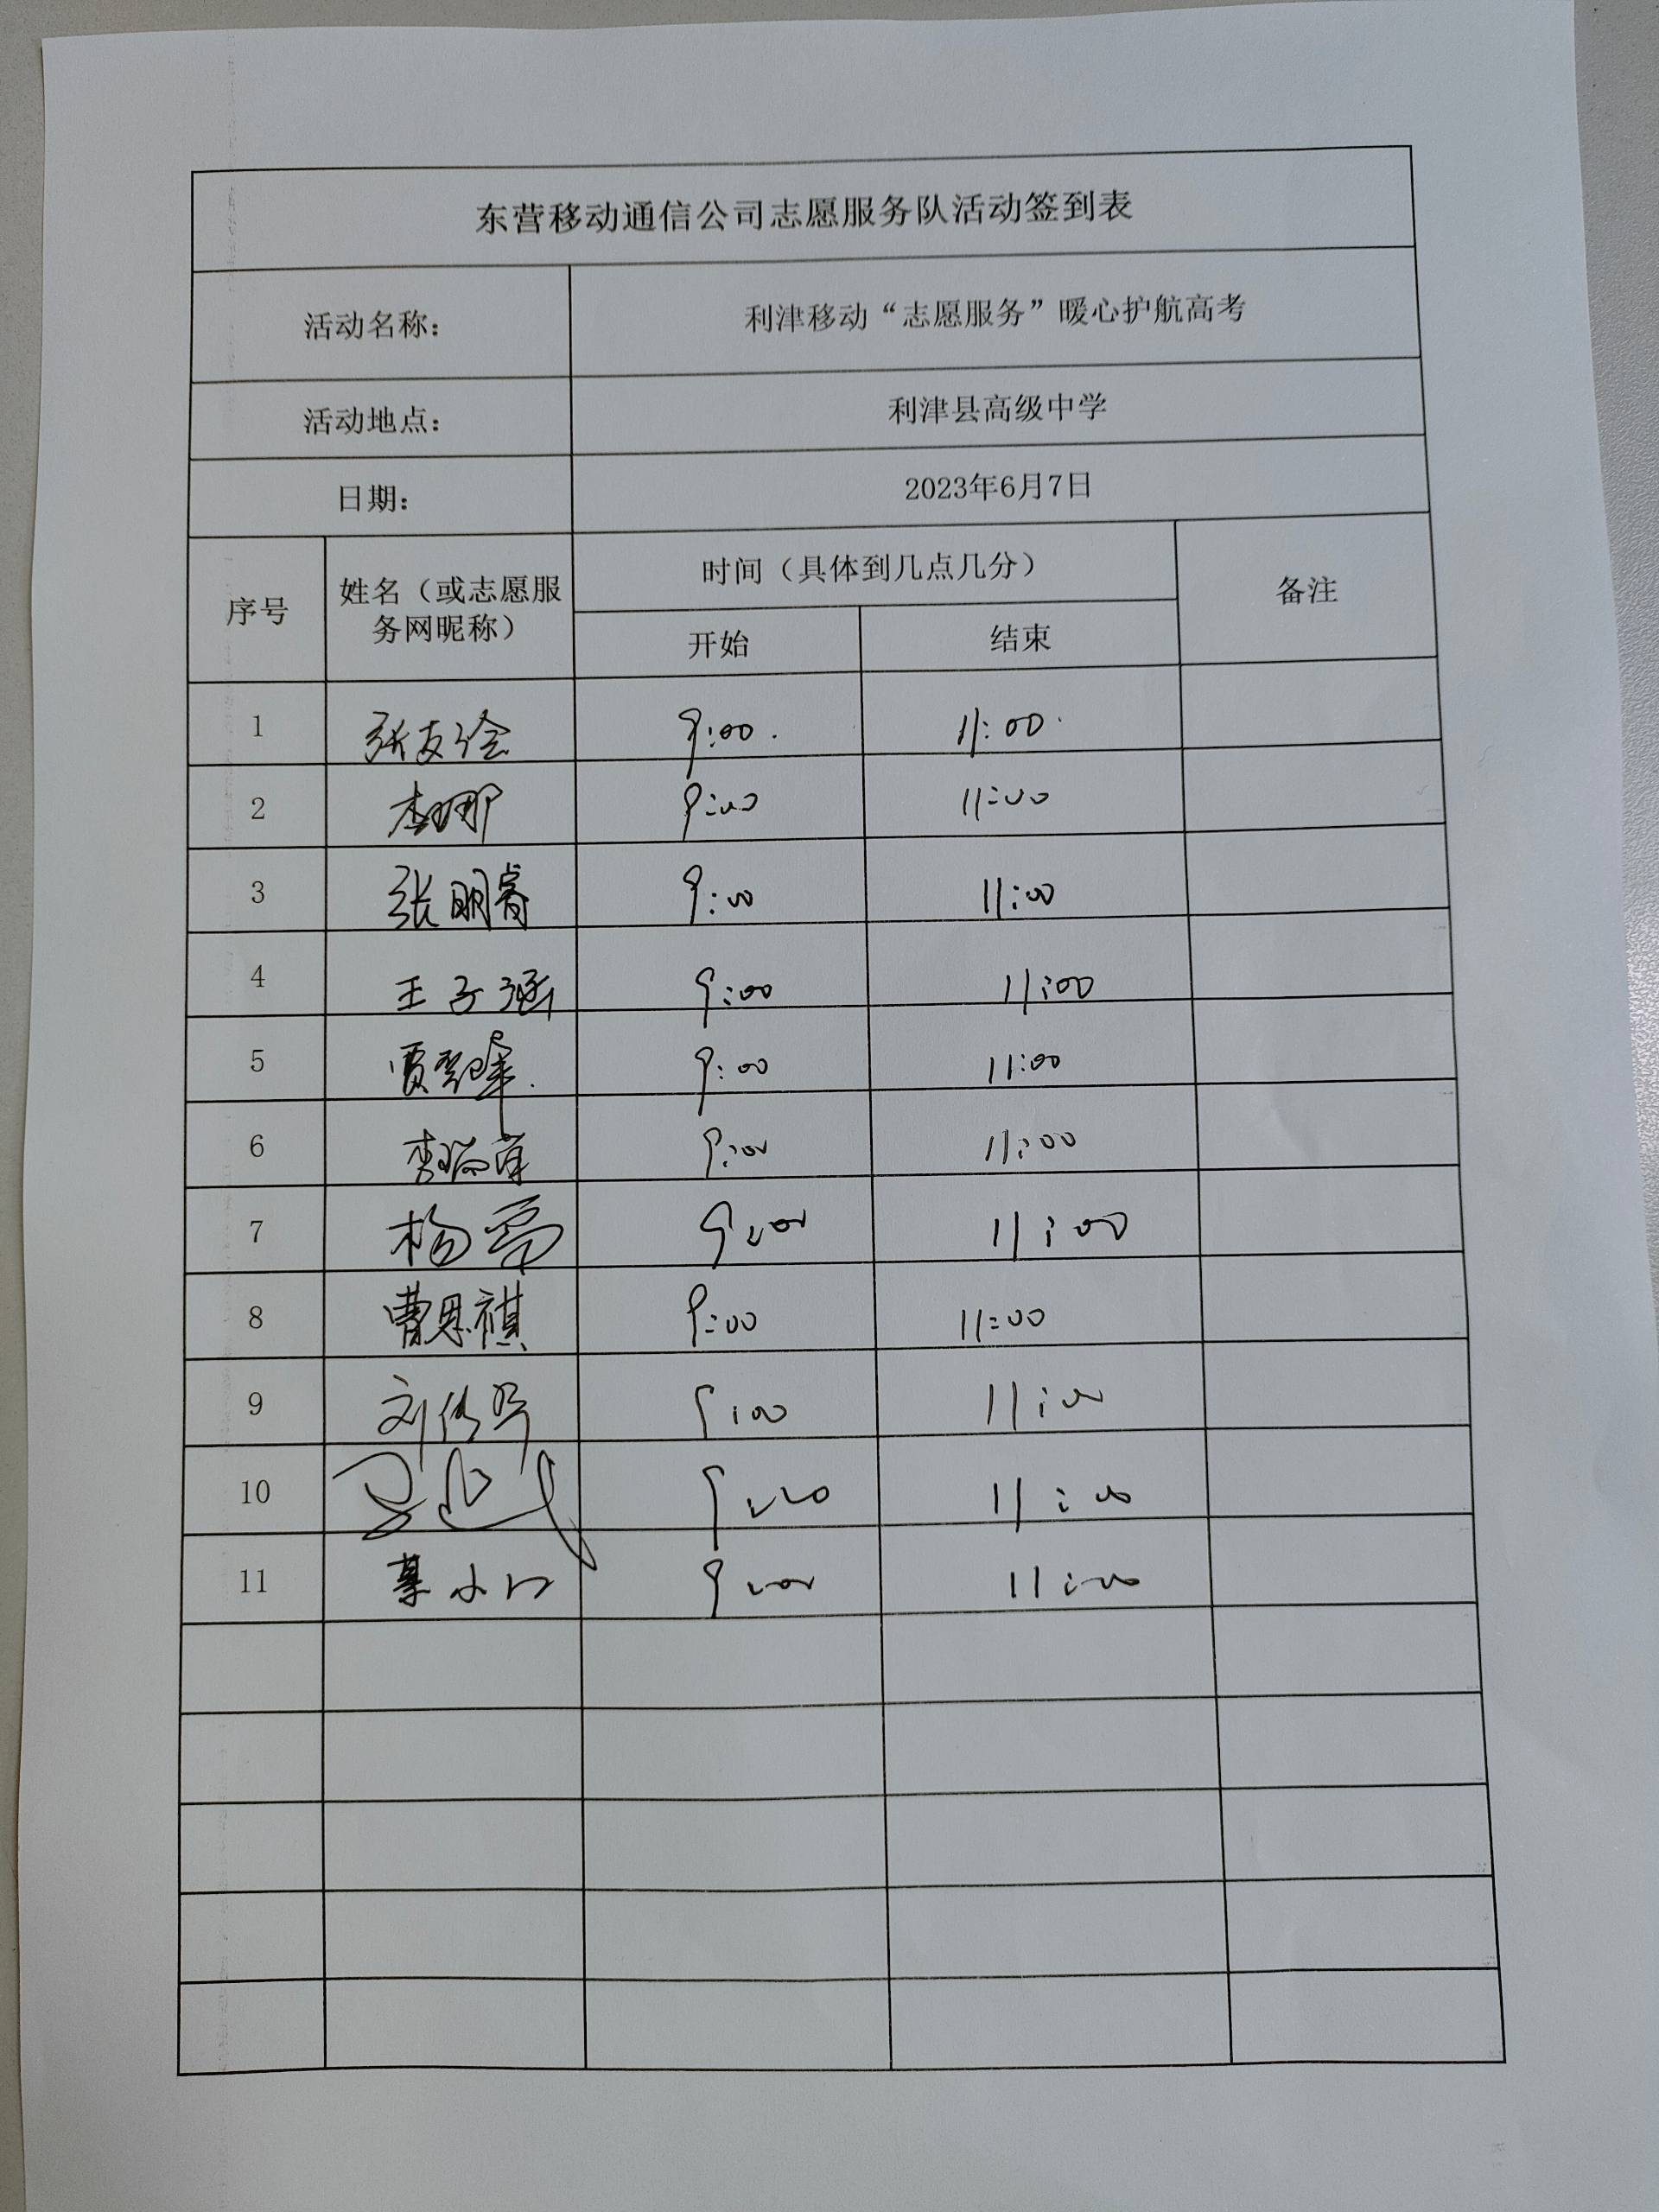 东营移动通信公司志愿服务队活动签到表
活动名称： 利津移动“志愿服务”暖心护航高考
活动地点： 利津县高级中学
日期： 2023年6月7日
序号 姓名（或志愿服务网昵称） 时间（具体到几点几分） 备注
开始 结束
1 9:00 11:00
2 李娜 9:00 11:00
3 张明睿 9:00 11:00
4 王子涵 9:00 11:00
5 9:00 11:00
6 9:00 11:00
7 杨雪 9:00 11:00
8 曹恩祺 9:00 11:00
9 9:00 11:00
10 9:00 11:00
11 9:00 11:00